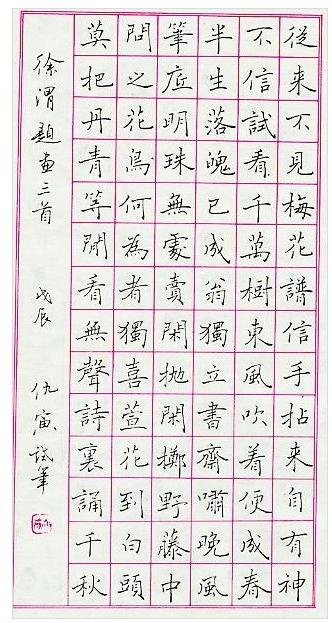 從来不見梅花譜信手拈来自有神
不信試看千萬樹東風吹着便成春
半生落魄已成翁獨立書齋嘯晚風
筆底明珠無處賣閑抛閑擲野藤中
問之花鳥何為者獨喜萱花到白頭
莫把丹青等閒看無聲詩裏誦千秋
徐渭題畫三首 戊辰 仇寅試筆